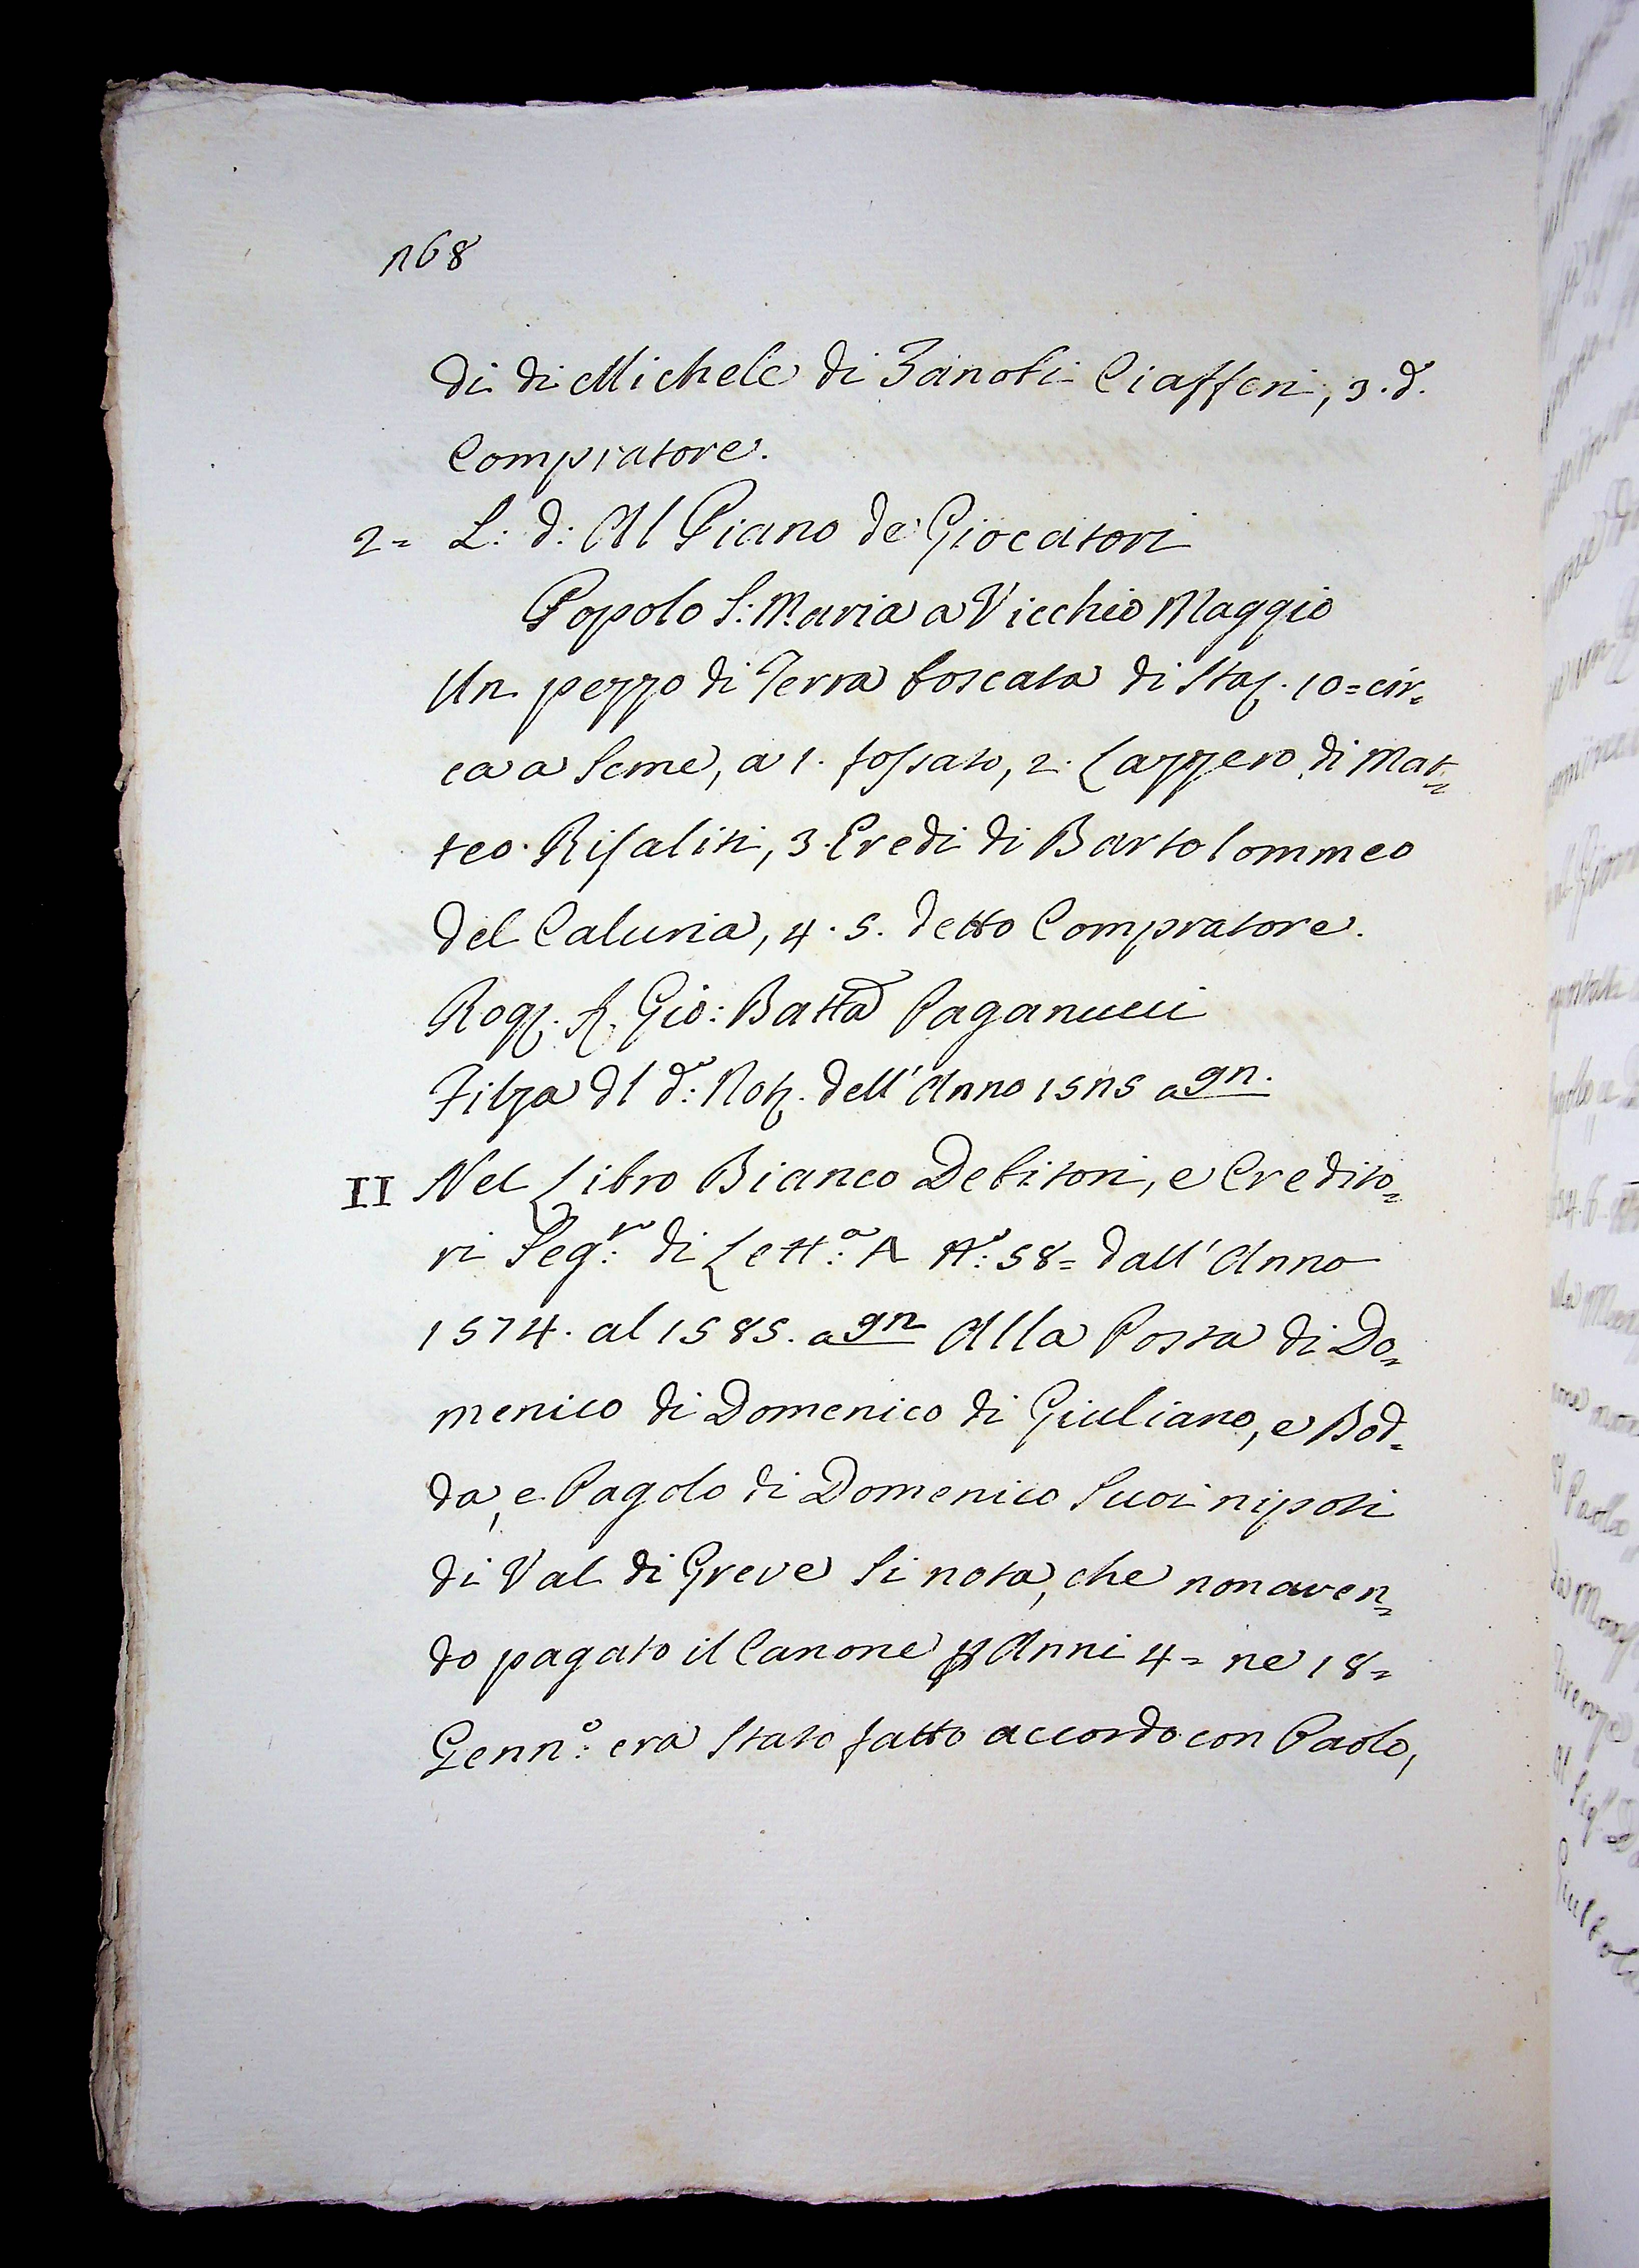 168
di di Michele di Zanobi Ciafferi, 3. d.
Compratore.
2= L: d: Al Piano de' Giocatori
Popolo S: Maria a Vicchio Maggio
Un pezzo di Terra boscata di Staj. 10= cir=
ca a Seme, a 1. fossato, 2. Lazzero di Mat=
teo Risaliti, 3. Eredi di Bartolommeo
del Caluria, 4. 5. detto Compratore.
Rog. Gio: Batta Paganucci
Filza dl d:o Not. dell'Anno 1515 agn.
II Nel Libro Bianco Debitori, e Credito=
ri Seg:r di Lett:a A N:o 58= dall'Anno
1574. al 1585. agn Alla Posta di Do=
menico di Domenico di Giuliano, e Bod=
da, e Pagolo di Domenico Suoi nipoti
di Val di Greve Si nota, che non aven=
do pagato il Canone p Anni 4= ne 18=
Genn:o era Stato fatto accordo con Paolo,